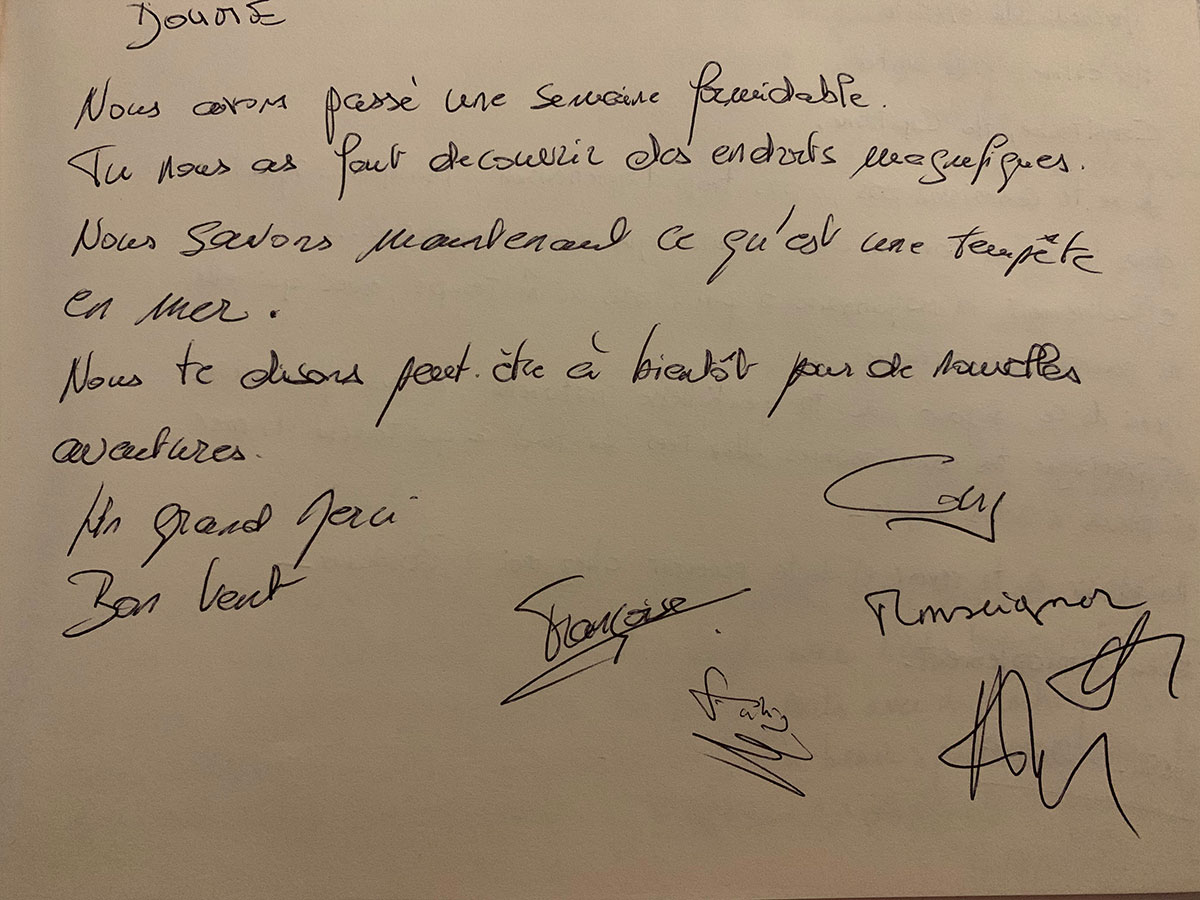 Nous avons passé une semaine formidable.
Tu nous as fait decouvrir des endroits magnifiques.
Nous savons maintenant ce qu'est une tempête
en mer.
Nous te disons peut-être à bientôt pour de nouvelles
aventures.
Un grand Merci
Bon Vent
Françoise
Monseignor